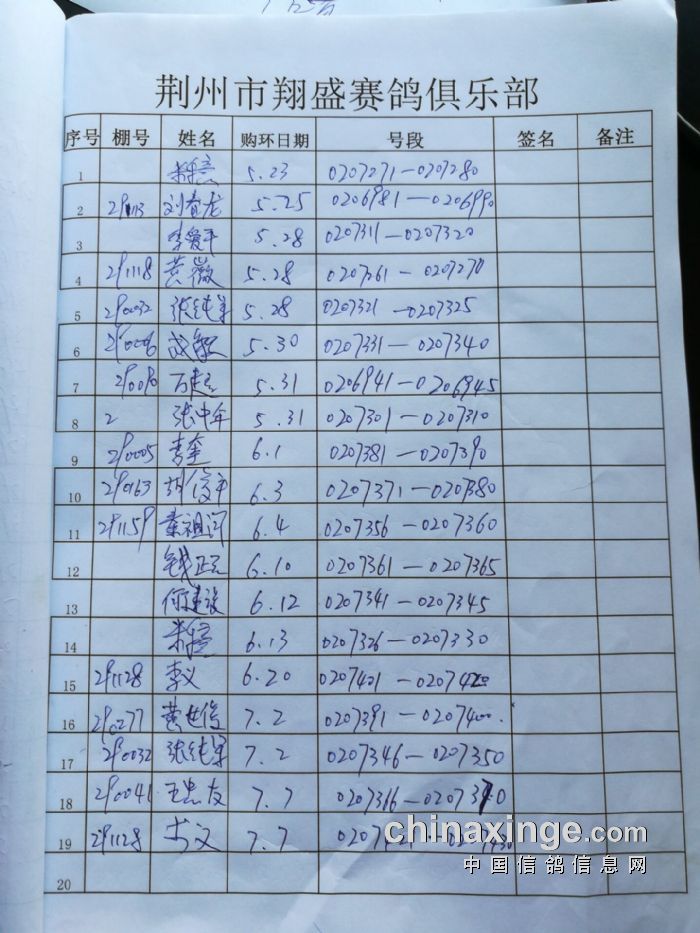 荆州市翔盛赛鸽俱乐部
序号 棚号 姓名 购环日期 号段 签名 备注
1 5.23 0207271—0207280
2 刘有龙 5.25 0206981—0206990
3 李爱平 5.28 0207311—0207320
4 291118 黄薇 5.28 0207261—0207270
5 290032 张纯军 5.28 0207321—0207325
6 290006 5.30 0207331—0207340
7 290090 5.31 0206941—0206945
8 2 张中年 5.31 0207301—0207310
9 290005 李奎 6.1 0207381—0207390
10 290163 胡俊平 6.3 0207371—0207380
11 291159 6.4 0207356—0207360
12 钱正 6.10 0207361—0207365
13 何建 6.12 0207341—0207345
14 6.13 0207326—0207330
15 291128 李义 6.20 0207401—0207420
16 290277 黄世俊 7.2 0207391—0207400.
17 290032 张纯军 7.2 0207346—0207350
18 290041 王忠友 7.7 0207366—0207370
19 291128 李义 7.7
20
chinaxinge.com
中国信鸽信息网